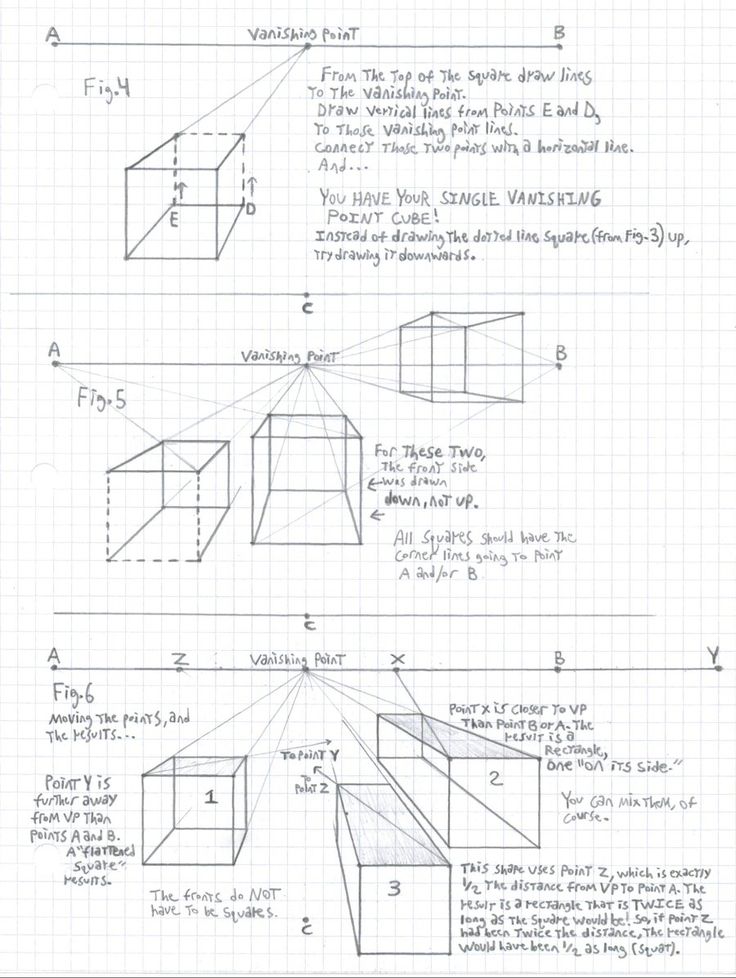 A Vanishing Point B
Fig.4
From The Top of The Square draw lines
To The Vanishing Point.
Draw Vertical lines from Points E and D,
To Those Vanishing Point lines.
Connect Those Two points with a horizontal line.
And...
You HAVE YOUR SINGLE VANISHING
POINT CUBE!
Instead of drawing The dotted line Square (from Fig-3) up,
Try drawing it downwards.
E D
C
A Vanishing Point B
Fig.5
For These Two,
The front side
was drawn
down, not up.
All Squares should have The
Corner lines going To Point
A and/or B
C
A Z Vanishing Point X B Y
Fig.6
Moving The points, and
The results...
Point X is closer To VP
Than Point B or A. The
result is a
Rectangle,
one "on its side."
To Point Y
To
Point Z
Point Y is
further away
from VP Than
Points A and B.
A "flattened
Square"
results.
1
2
3
You can mix Them, of
course.
The fronts do NOT
have To be squares.
C
This shape uses Point Z, which is exactly
1/2 The distance from VP To Point A. The
result is a rectangle That is TWICE as
long as The Square would be! So, if Point Z
had been Twice The distance, The rectangle
would have been 1/2 as long (squat).